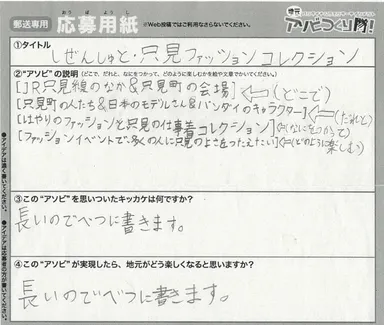 郵送専用
おうぼようし
応募用紙
※Web投稿ではご利用なさらないでください。
地元
アソビつくり隊!
①タイトル
しぜんしゅと・只見ファッションコレクション
②"アソビ"の説明(どこで、だれと、なにをつかって、どのように楽しむかを絵や文章でかいてください。)
[JR只見線のなか&只見町の会場]⇐(どこで)
[只見町の人たち&日本のモデルさん&バンダイのキャラクター]⇐(だれと)
[はやりのファッションと只見の仕事着コレクション]⇐(なにをつかって)
[ファッションイベントで、多くの人に只見のよさをつたえたい]⇐(どのように楽しむ)
③この"アソビ"を思いついたキッカケは何ですか?
長いのでべつに書きます。
④この"アソビ"が実現したら、地元がどう楽しくなると思いますか?
長いのでべつに書きます。